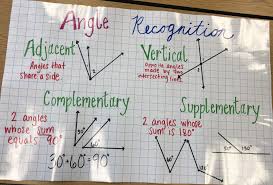 Angle Recognition
Adjacent
Angles that
share a side.
Vertical
opposite angles
made by two
intersecting lines.
Complementary
2 angles
whose sum
equals 90°
30°
60°
30°+60°=90°
Supplementary
2 angles whose
sum is 180°